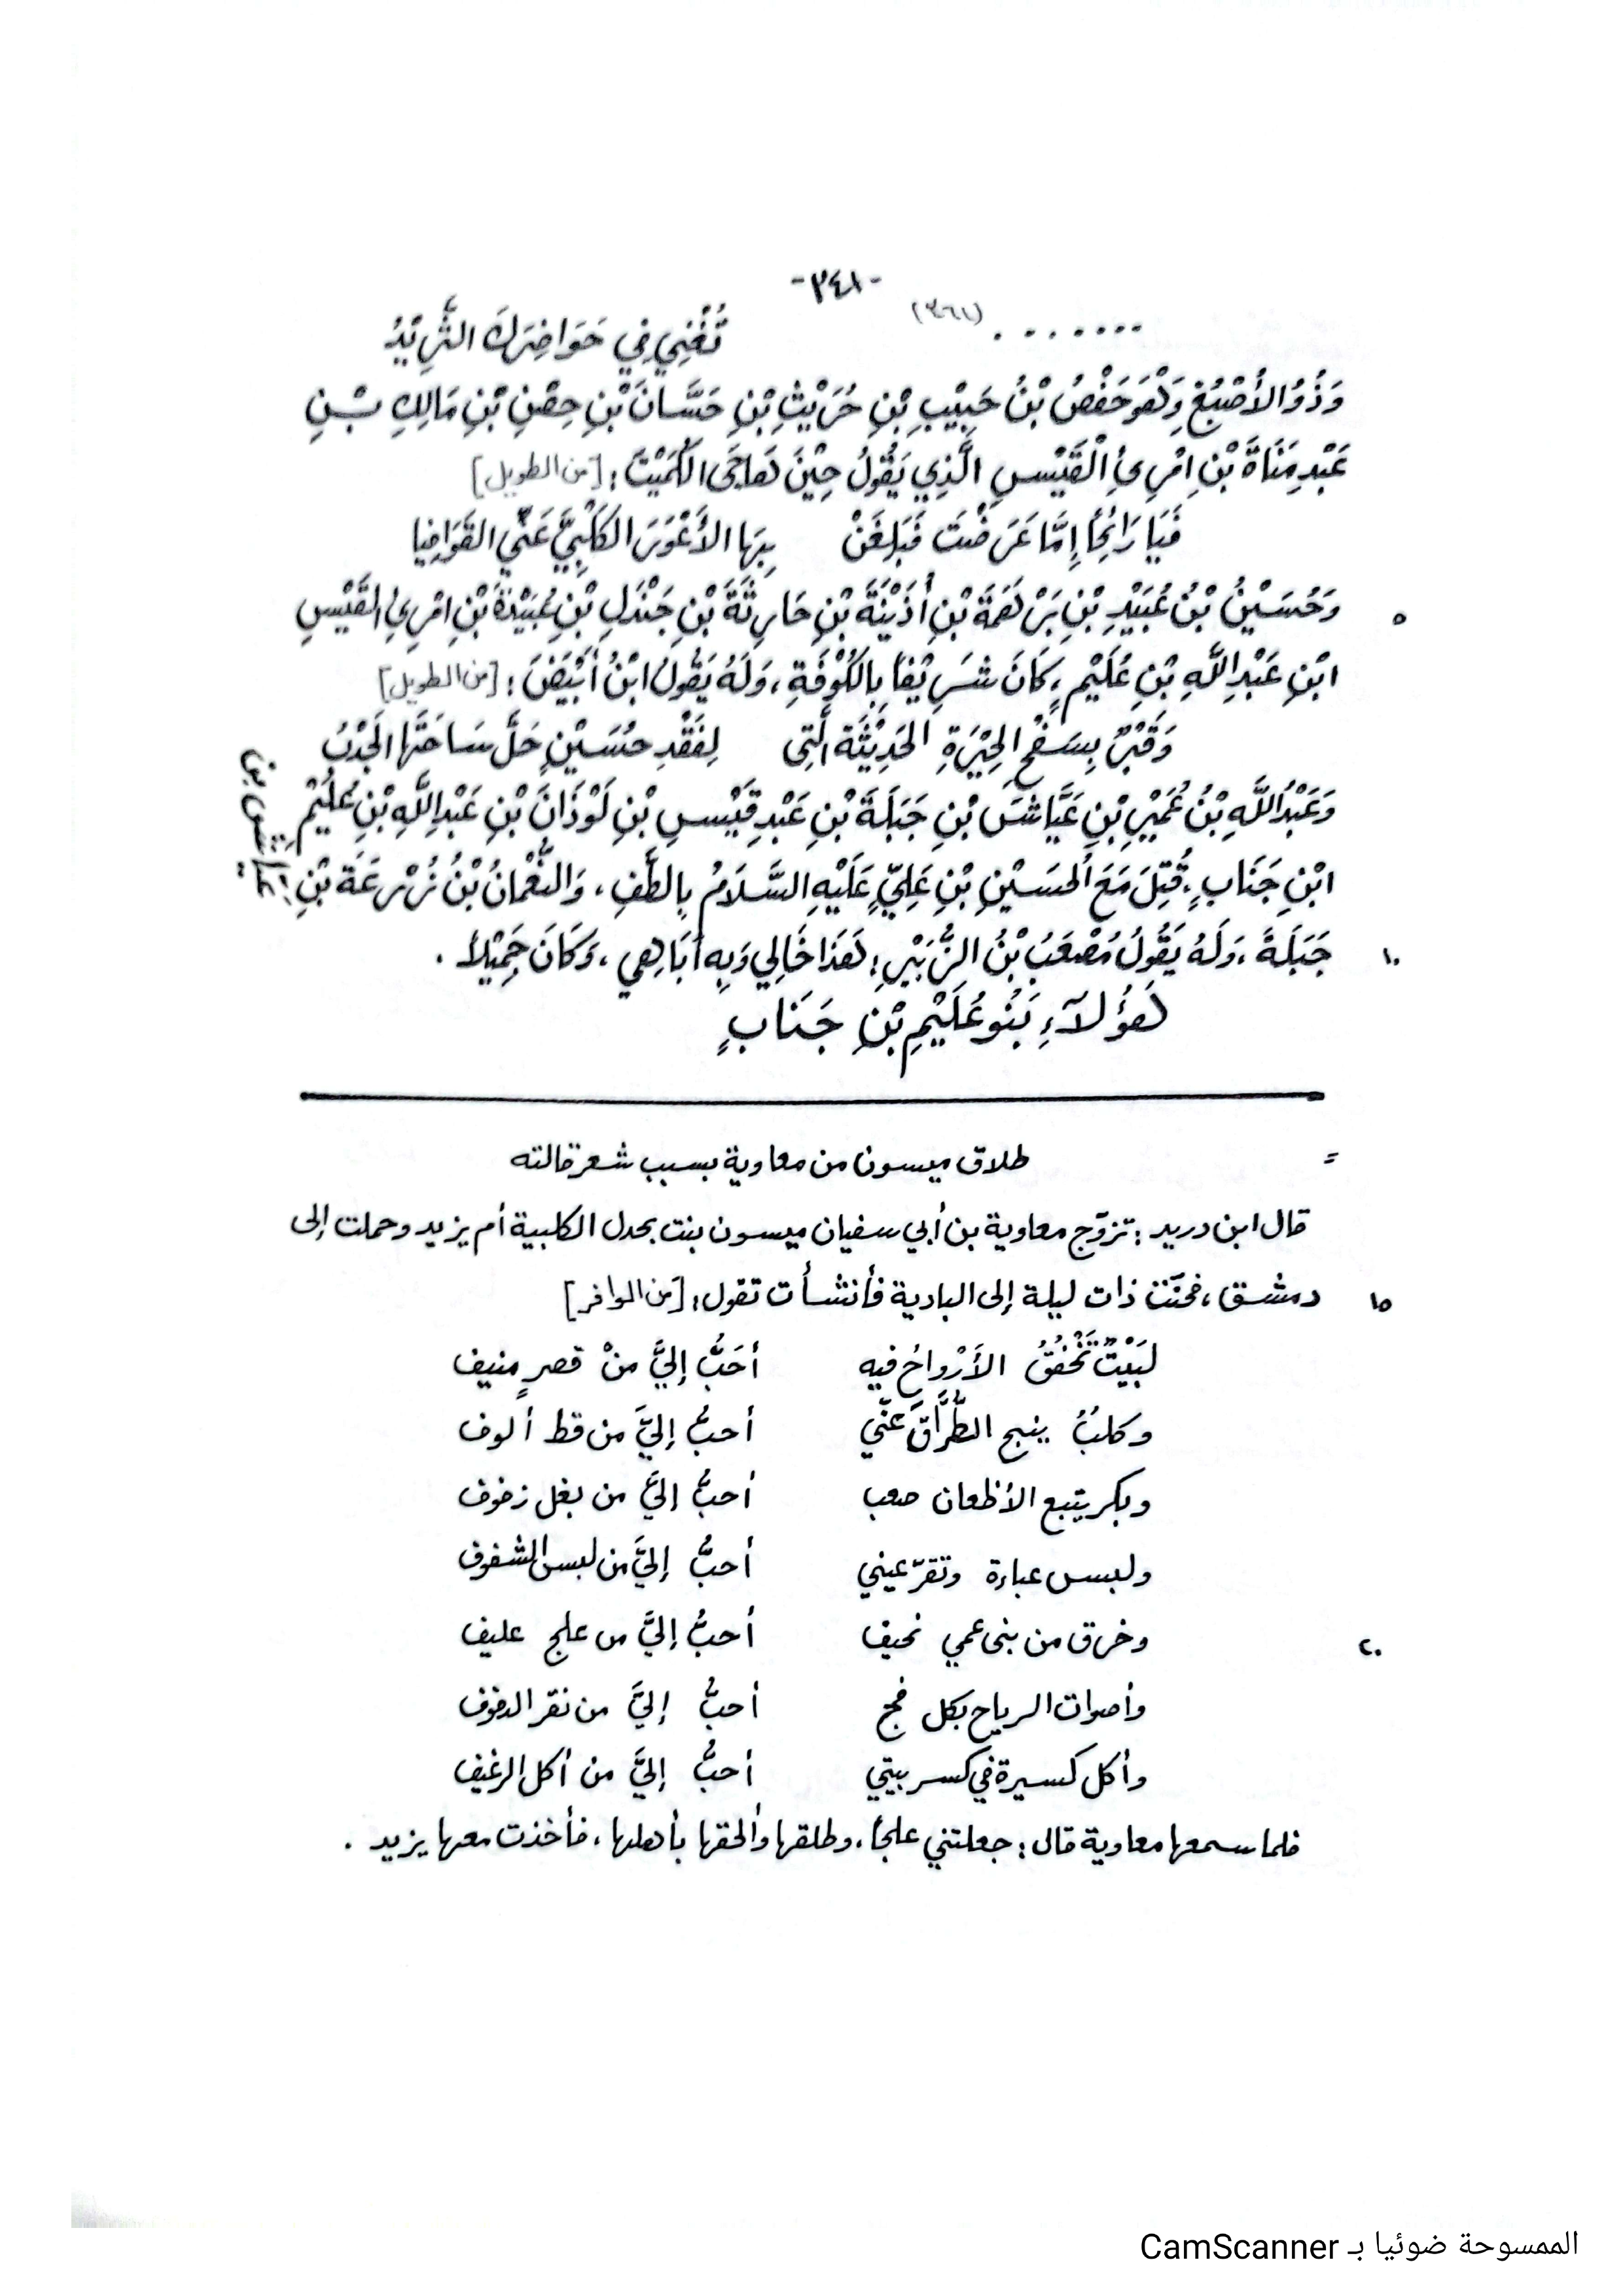 -٣٤١-
. . . . . . . (٣٦١) تُغْنِي فِي حَوَاضِرِكَ الثَّرِيْدُ
وَذُو الأُصْبُعِ وَهُوَ حَفْصُ بْنُ حَبِيْبِ بْنِ حُرَيْثِ بْنِ حَسَّانَ بْنِ حِصْنِ بْنِ مَالِكِ بْنِ
عَبْدِ مَنَاةَ بْنِ امْرِئِ الْقَيْسِ الَّذِي يَقُولُ حِيْنَ هَاجَى الكُمَيْتَ : [من الطويل]
فَيَا رَائِحًا إِمَّا عَرَضْتَ فَبَلِّغَنْ بِهَا الأَعْوَرَ الكَلْبِيَّ عَنِّي القَوَافِيا
٥ وَحُسَيْنُ بْنُ عُبَيْدِ بْنِ بَرْهَمَةَ بْنِ أُذَيْنَةَ بْنِ حَارِثَةَ بْنِ جَنْدَلِ بْنِ عُبَيْدَةَ بْنِ امْرِئِ القَيْسِ
ابْنِ عَبْدِ اللَّهِ بْنِ عُلَيْمٍ ، كَانَ شَرِيْفًا بِالكُوْفَةِ ، وَلَهُ يَقُولُ ابْنُ أَبْيَضَ : [من الطويل]
وَقَبْرٌ بِسَفْحِ الحِيْرَةِ الحَدِيْثَةِ الَّتِي لِفَقْدِ حُسَيْنٍ حَلَّ سَاحَتَهَا الجَدْبُ
وَعَبْدُ اللَّهِ بْنُ عُمَيْرِ بْنِ عَيَّاشِ بْنِ جَبَلَةَ بْنِ عَبْدِ قَيْسِ بْنِ لَوْذَانَ بْنِ عَبْدِ اللَّهِ بْنِ عُلَيْمِ
ابْنِ جَنَابٍ ، قُتِلَ مَعَ الحُسَيْنِ بْنِ عَلِيٍّ عَلَيْهِ السَّلَامُ بِالطَّفِ ، وَالنُّعْمَانُ بْنُ زُرْعَةَ بْنِ عَيَّاشِ بْنِ
١٠ جَبَلَةَ ، وَلَهُ يَقُولُ مُصْعَبُ بْنُ الزُّبَيْرِ : هَذَا خَالِي وَبِهِ أُبَاهِي ، وَكَانَ جَمِيْلًا .
هَؤُلَآءِ بَنُو عُلَيْمِ بْنِ جَنَابٍ
= طلاق ميسون من معاوية بسبب شعر قالته
قال ابن دريد : تزوّج معاوية بن أبي سفيان ميسون بنت بحدل الكلبية أم يزيد وحملت إلى
١٥ دمشق ، فحنّت ذات ليلة إلى البادية فأنشأت تقول : [من الوافر]
لَبَيْتٌ تَخْفُقُ الأَرْواحُ فيه أحَبُّ إليَّ منْ قصرٍ منيف
وكلبٌ ينبح الطُّرَّاقَ عنّي أحبُّ إليَّ من قط ألوف
وبكر يتبع الأظعان صعب أحبُّ إليَّ من بغل زفوف
ولبس عباءة وتقرّ عيني أحبُّ إليَّ من لبس الشفوف
٢٠ وخرق من بني عمي نحيف أحبُّ إليَّ من علج عليف
وأصوات الرياح بكل فج أحبُّ إليَّ من نقر الدفوف
وأكل كسيرة في كسر بيتي أحبُّ إليَّ من أكل الرغيف
فلما سمعها معاوية قال : جعلتني علجًا ، وطلقها وألحقها بأهلها ، فأخذت معها يزيد .
الممسوحة ضوئيا بـ CamScanner